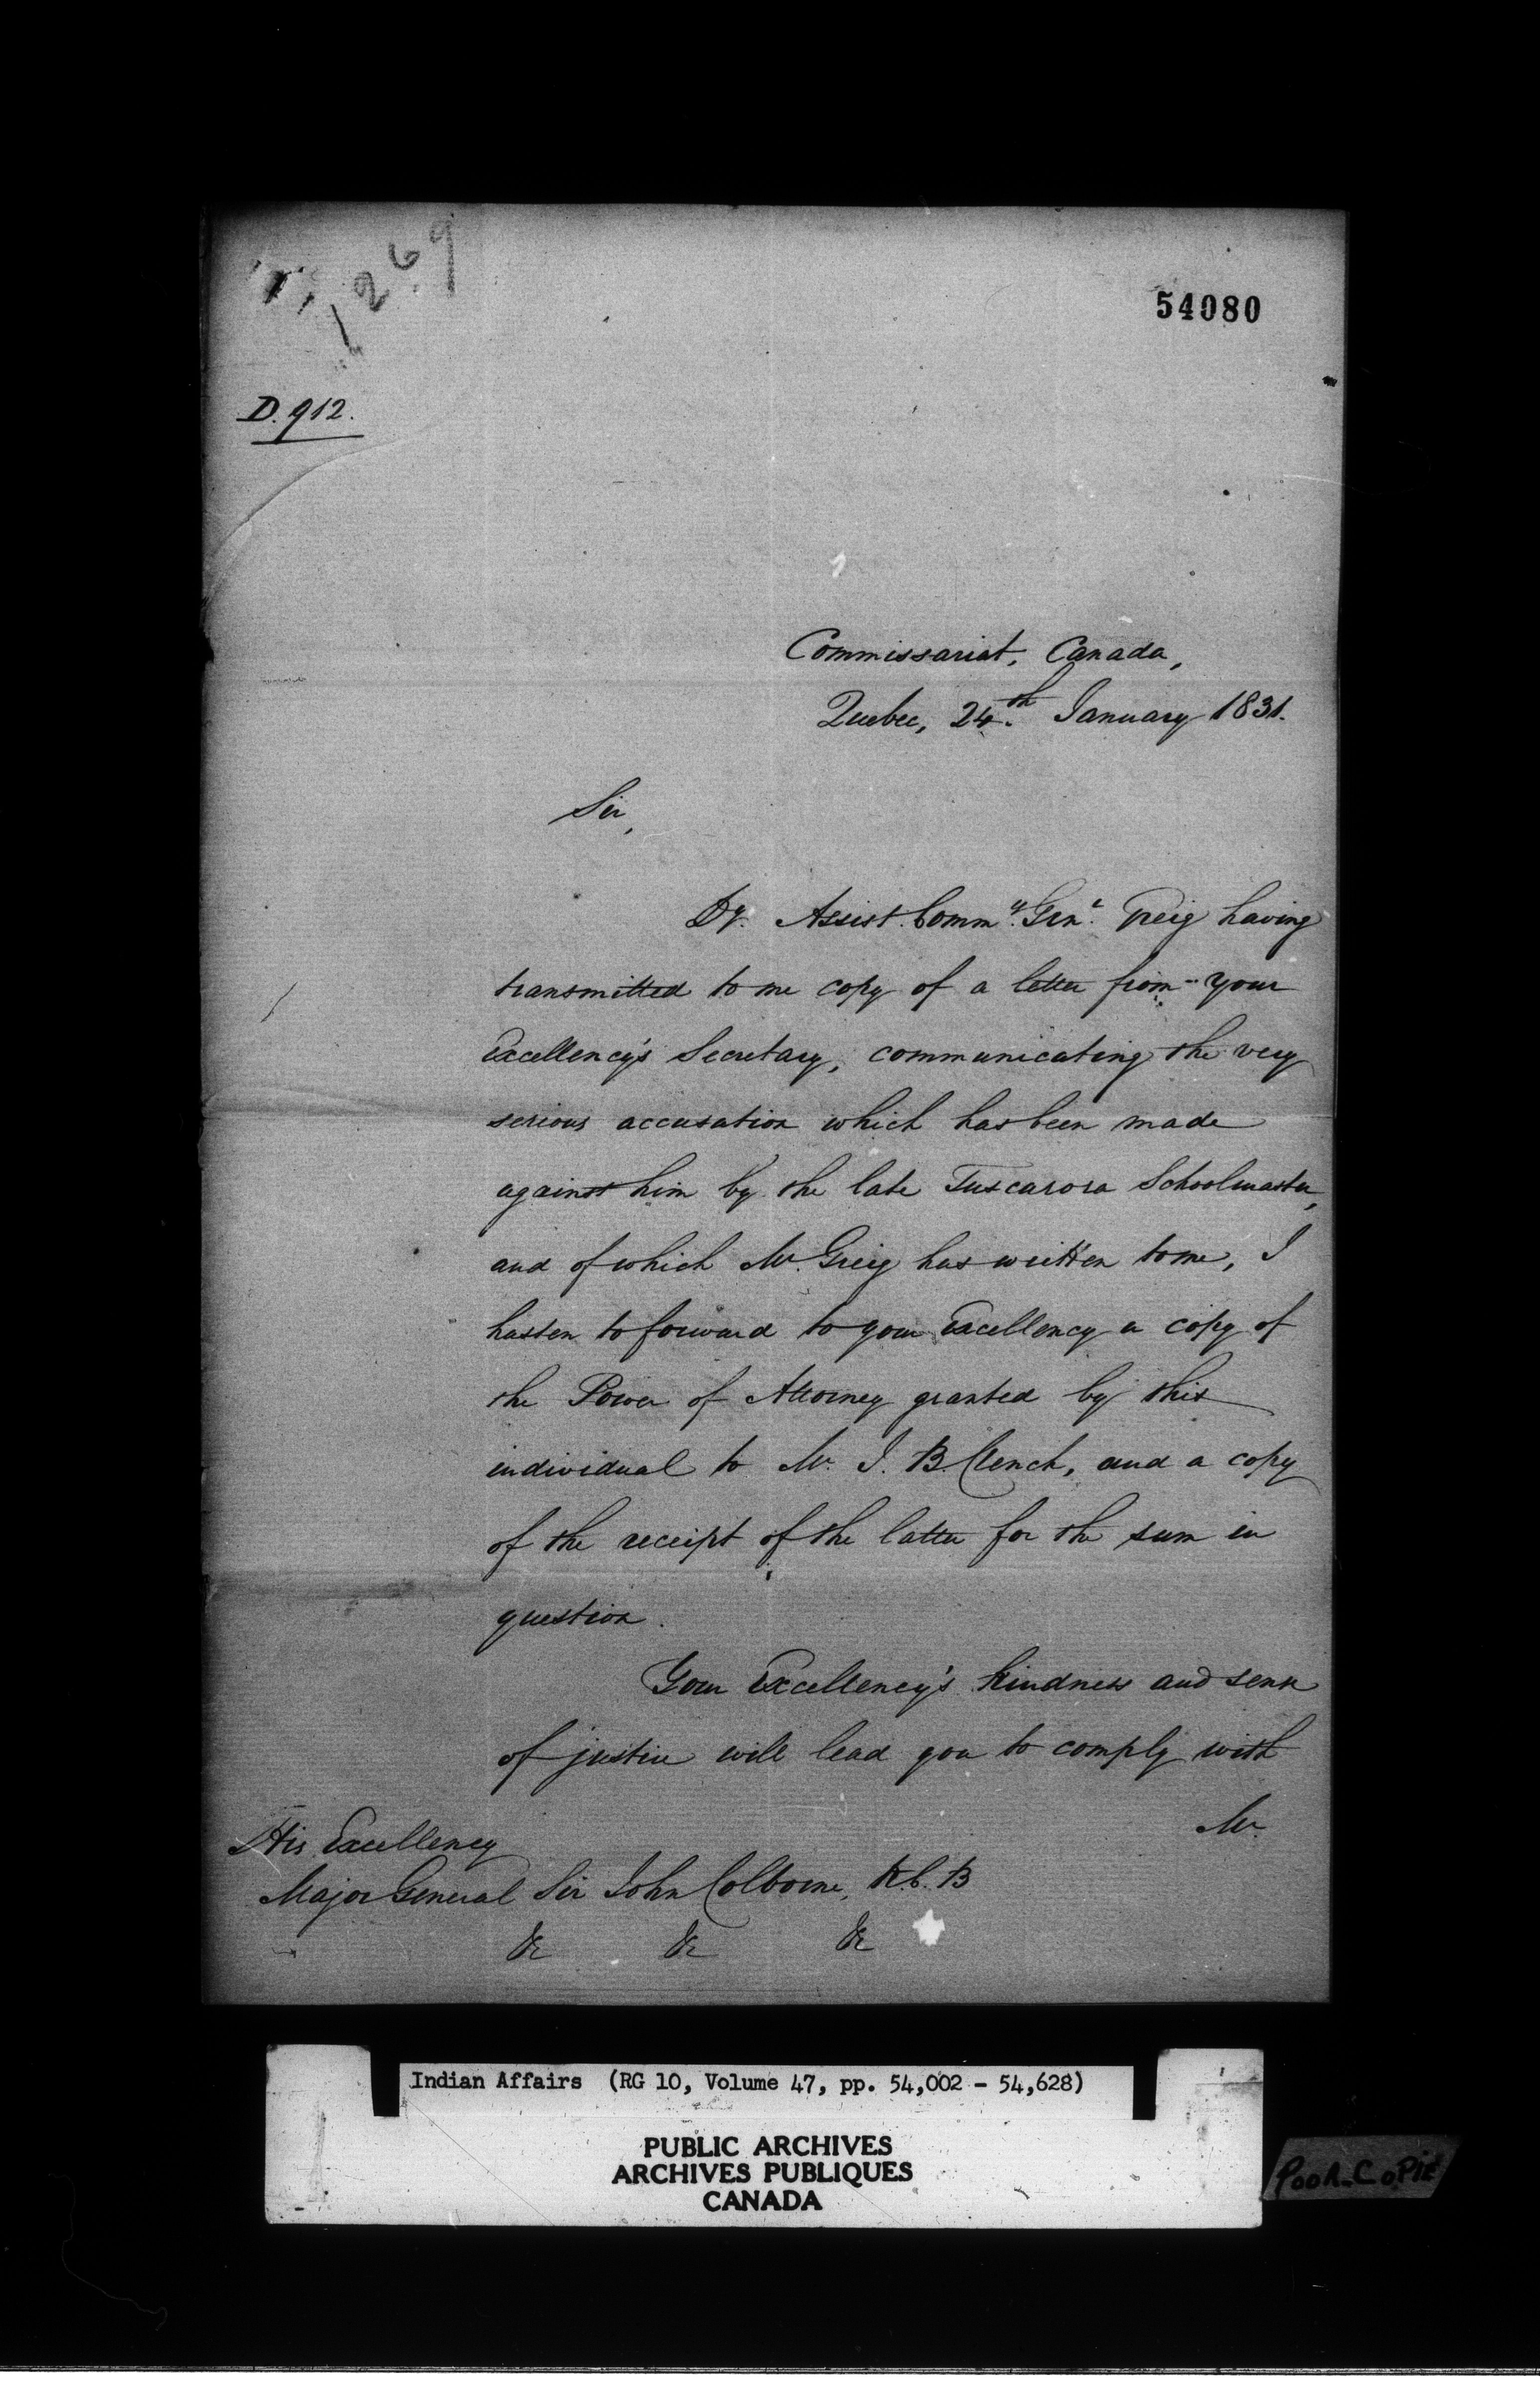 1269
54080
D. 912.
Commissariat, Canada,
Quebec, 24.th January 1831.
Sir,
Dy. Assist. Commy. Genl. Greig having
transmitted to me copy of a letter from your
Excellency's Secretary, communicating the very
serious accusation which has been made
against him by the late Tuscarora Schoolmaster,
and of which Mr. Greig has written to me, I
hasten to forward to your Excellency a copy of
the Power of Attorney granted by this
individual to Mr. J. B. Clench, and a copy
of the receipt of the latter for the sum in
question.
Your Excellency's kindness and sense
of justice will lead you to comply with
Mr.
His Excellency
Major General Sir John Colborne, K.C.B
&c &c &c
Indian Affairs (RG 10, Volume 47, pp. 54,002 - 54,628)
PUBLIC ARCHIVES
ARCHIVES PUBLIQUES
CANADA
POOR COPIE